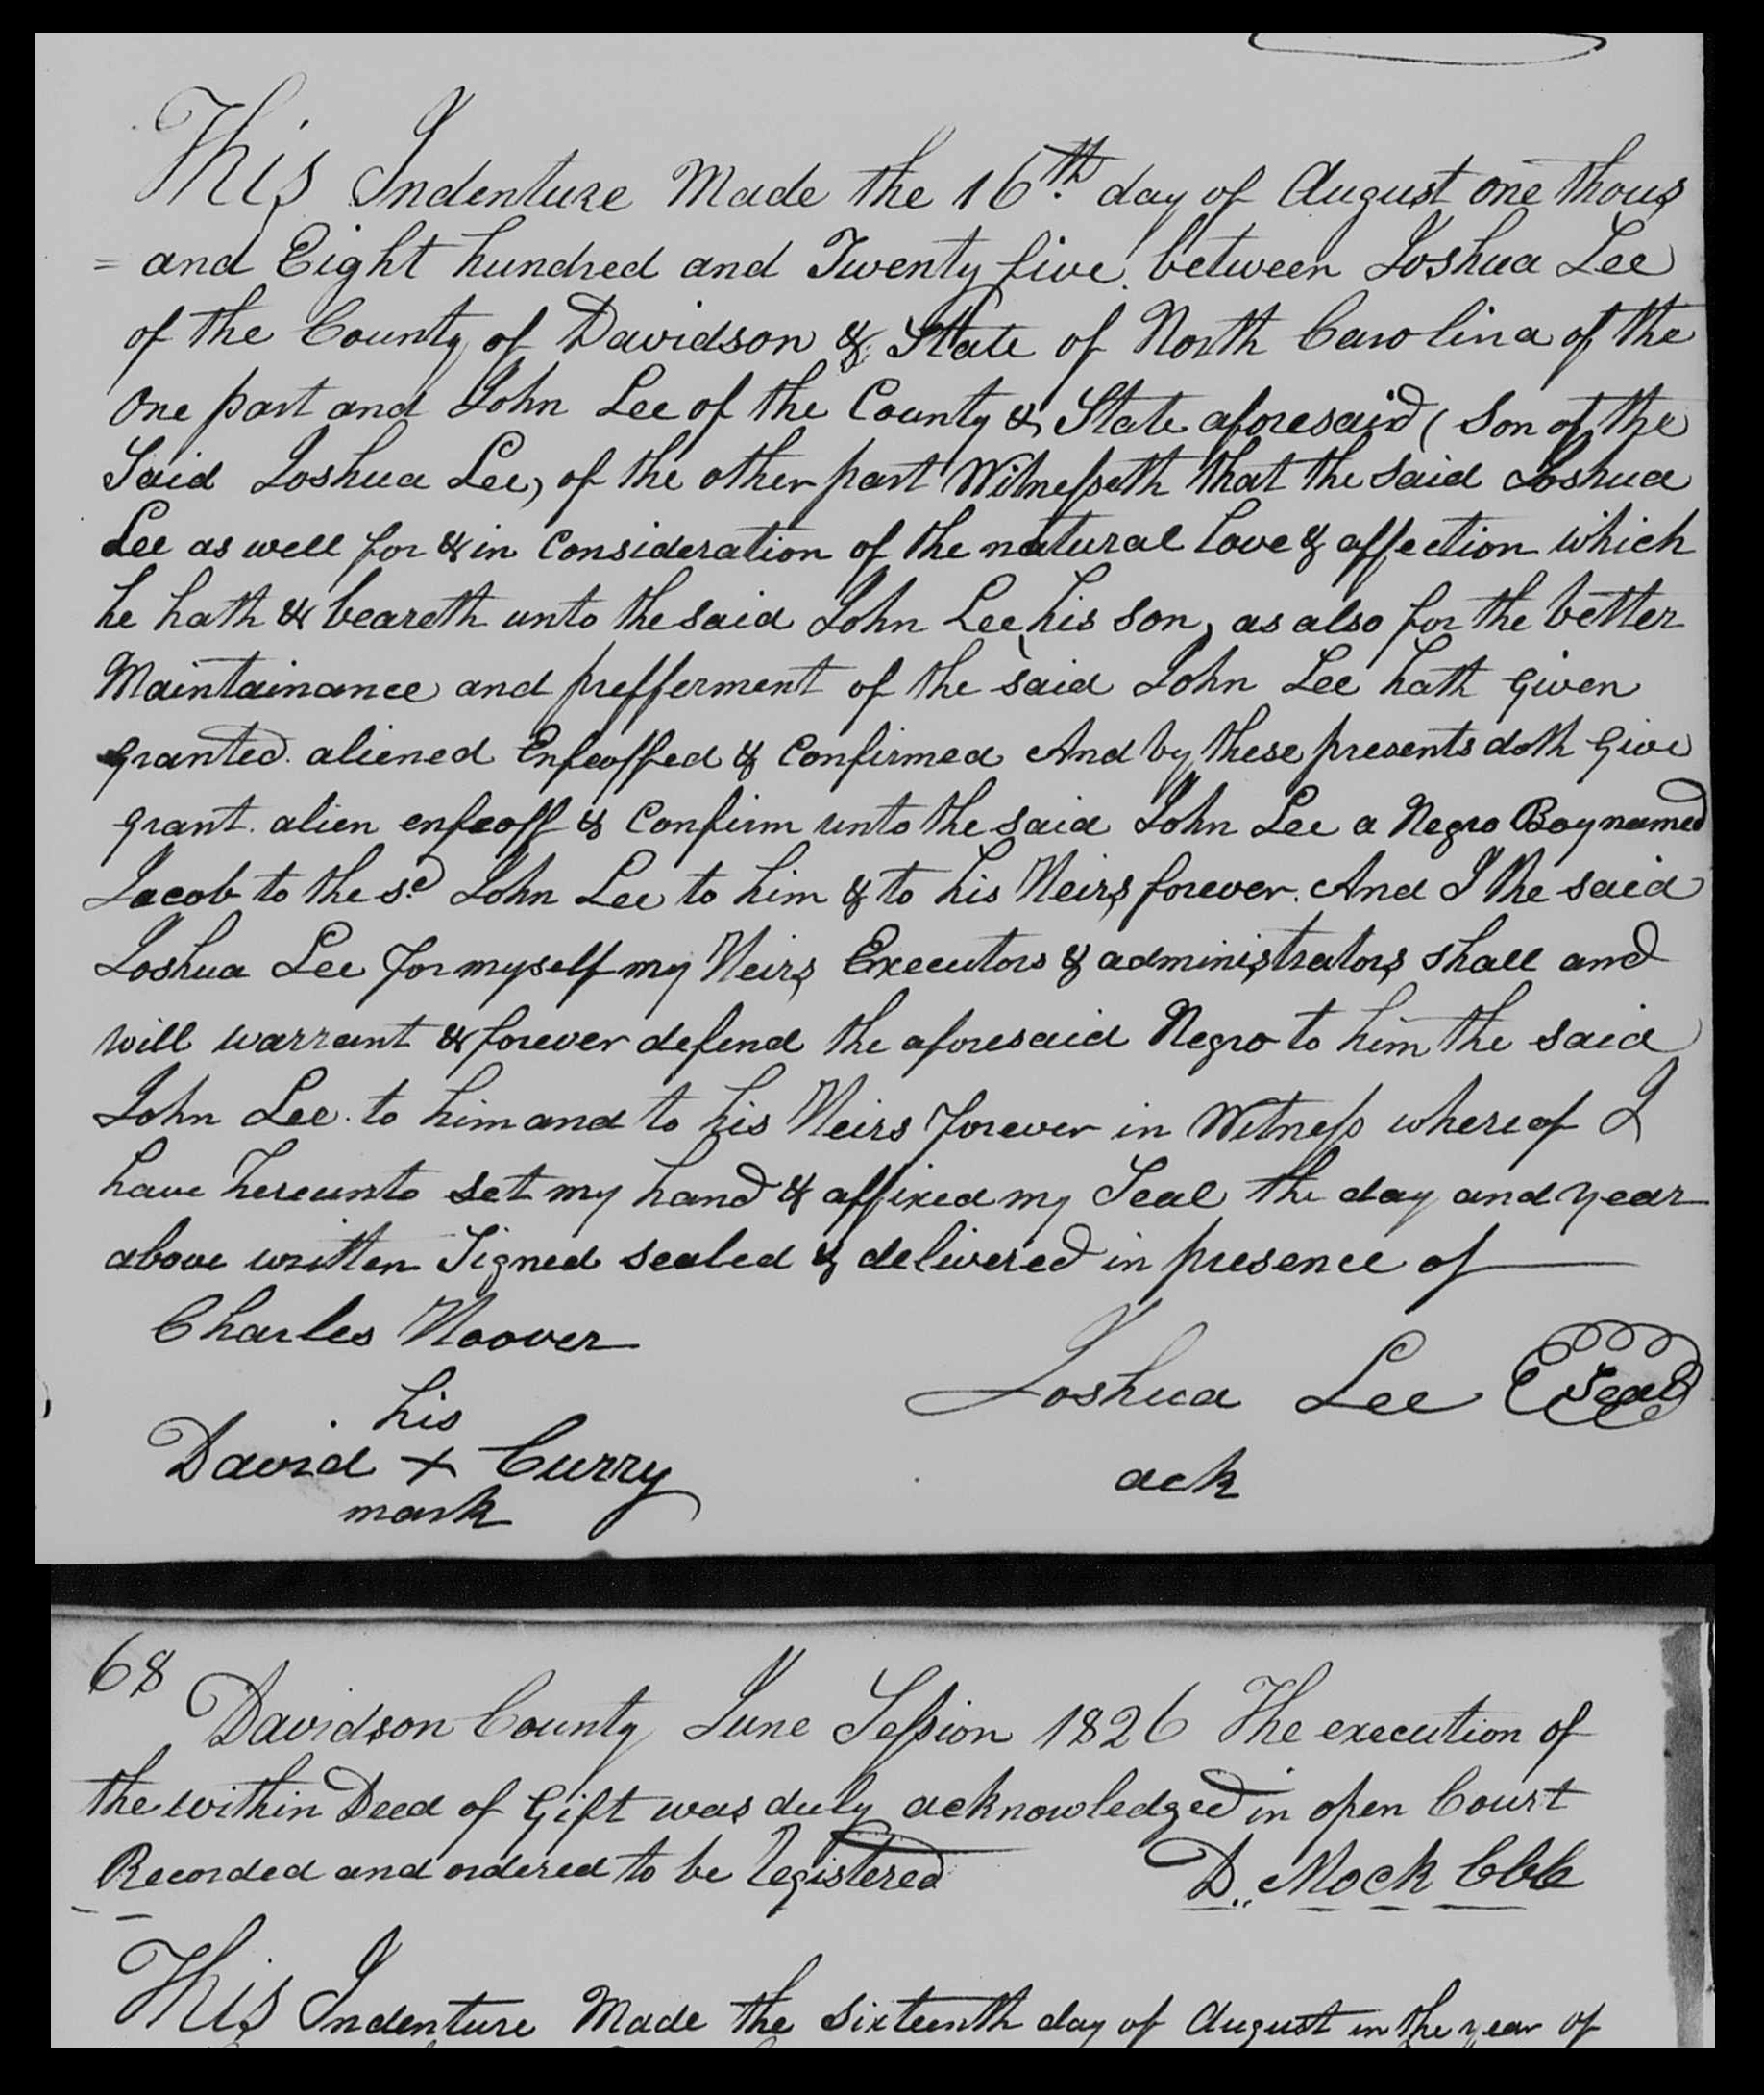 This Indenture Made the 16th. day of August one thous
= and Eight hundred and Twenty five between Joshua Lee
of the County of Davidson & State of North Carolina of the
One part and John Lee of the County & State aforesaid (Son of the
Said Joshua Lee) of the other part Witnesseth that the said Joshua
Lee as well for & in Consideration of the natural love & affection which
he hath & beareth unto the said John Lee his son, as also for the better
Maintainance and prefferment of the said John Lee hath given
granted. aliened Enfeoffed & Confirmed And by these presents doth Give
grant. alien enfeoff & Confirm unto the said John Lee a Negro Boy named
Jacob to the sd. John Lee to him & to his Heirs forever. And I the said
Joshua Lee for myself my Heirs Executors & administrators shall and
will warrant & forever defend the aforesaid Negro to him the said
John Lee. to him and to his Heirs forever in Witness whereof I
have hereunto set my hand & affixed my Seal the day and year
above written Signed sealed & delivered in presence of
Charles Hoover
Joshua Lee Seal
his
David + Curry
mark
ack
68
Davidson County June Session 1826 The execution of
the within Deed of Gift was duly acknowledged in open Court
Recorded and ordered to be Registered
D. Mock CCC
This Indenture Made the Sixteenth day of August in the year of